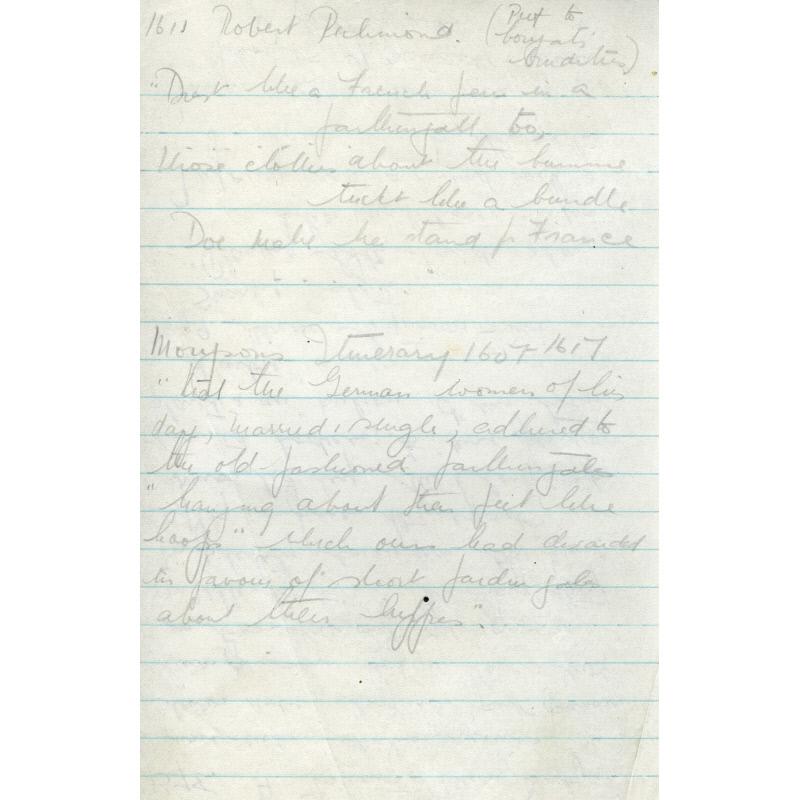 1611 Robert Richmond. (Pref to
Coryat's
Crudities)
"Drest like a French
in a
farthingall too,
Those clothes about the bumme
tuckt like a bundle
Doe make he stand for France
. . . . . .
Moryson's Itinerary 1607 1617
" that the German women of his
day, married & single, adhered to
the old-fashioned farthingales
"hanging about their feet like
hoops" which ours had discarded
in favour of short fardingales
about their hyppes".